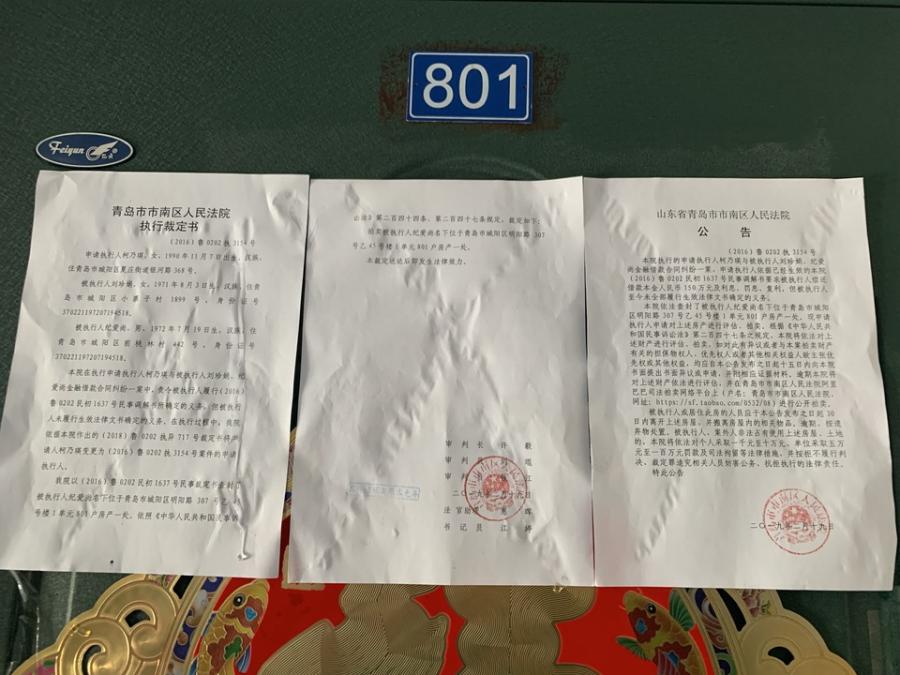 801
Feiyun
飞云
青岛市市南区人民法院
执行裁定书
（2016）鲁 0202 执 3154 号
申请执行人柯乃瑛，女，1990 年 11 月 7 日出生，汉族，
住青岛市城阳区夏庄街道银河路 368 号。
被执行人刘珍娟，女，1971 年 8 月 3 日生，汉族，住青
岛市城阳区小寨子村 1899 号，身份证号
370221197207194518。
被执行人纪爱尚，男，1972 年 7 月 19 日生，汉族，住
青岛市城阳区前桃林村 442 号，身份证号
370221197207194518。
本院在执行申请执行人柯乃瑛与被执行人刘珍娟、纪
爱尚金融借款合同纠纷一案中，责令被执行人履行(2016)
鲁 0202 民初 1637 号民事调解书所确定的义务，但被执行
人未履行生效法律文书确定的义务，在执行过程中，我院
依据本院作出的（2018）鲁 0202 执异 717 号裁定书将申
请人柯乃瑛变更为（2016）鲁 0202 执 3154 号案件的申请
执行人。
我院以（2016）鲁 0202 民初 1637 号民事裁定书查封了
被执行人纪爱尚名下位于青岛市城阳区明阳路 307 号乙 45
号楼 1 单元 801 户房产一处。依照《中华人民共和国民事诉
讼法》第二百四十四条、第二百四十七条规定，裁定如下：
拍卖被执行人纪爱尚名下位于青岛市城阳区明阳路 307
号乙 45 号楼 1 单元 801 户房产一处。
本裁定送达后即发生法律效力。
审 判 长 许 毅
审 判 员
审 判 员 江
二〇一九年二月十九日
法 官 助 理 辉
书 记 员 江 婷
山东省青岛市市南区人民法院
公 告
（2016）鲁 0202 执 3154 号
本院执行的申请执行人柯乃瑛与被执行人刘珍娟、纪爱
尚金融借款合同纠纷一案，申请执行人依据已经生效的本院
(2016)鲁 0202 民初 1637 号民事调解书要求被执行人偿还
借款本金人民币 150 万元及利息、罚息、复利，但被执行人
至今未全部履行生效法律文书确定的义务。
本院依法查封了被执行人纪爱尚名下位于青岛市城阳
区明阳路 307 号乙 45 号楼 1 单元 801 户房产一处，现申请
执行人申请对上述房产进行评估、拍卖，根据《中华人民共
和国民事诉讼法》第二百四十七条之规定，本院将依法对上
述财产进行评估、拍卖，如对此有异议或者与本案拍卖财产
有关的担保物权人、优先权人或者其他相关权益人欲主张优
先权或其他权益，均应自本公告发布之日起十五日内向本院
书面提出书面异议或申请，并附相应证据材料，逾期本院将
对上述财产依法进行评估，并在青岛市市南区人民法院阿里
巴巴司法拍卖网络平台上（户名：青岛市市南区人民法院，
网址：https://sf.taobao.com/0532/08）进行公开拍卖。
被执行人或居住此房的人员应于本公告发布之日起 30
日内离开上述房屋，并搬离房屋内的相关物品，逾期，按遗
弃物处置。被执行人、案外人非法占有使用上述房屋、土地
的，本院将依法对个人采取一千元至十万元，单位采取五万
元至一百万元罚款及司法拘留等法律措施，并按拒不履行判
决、裁定罪追究相关人员妨害公务、抗拒执行的法律责任。
特此公告
二〇一九年二月十九日